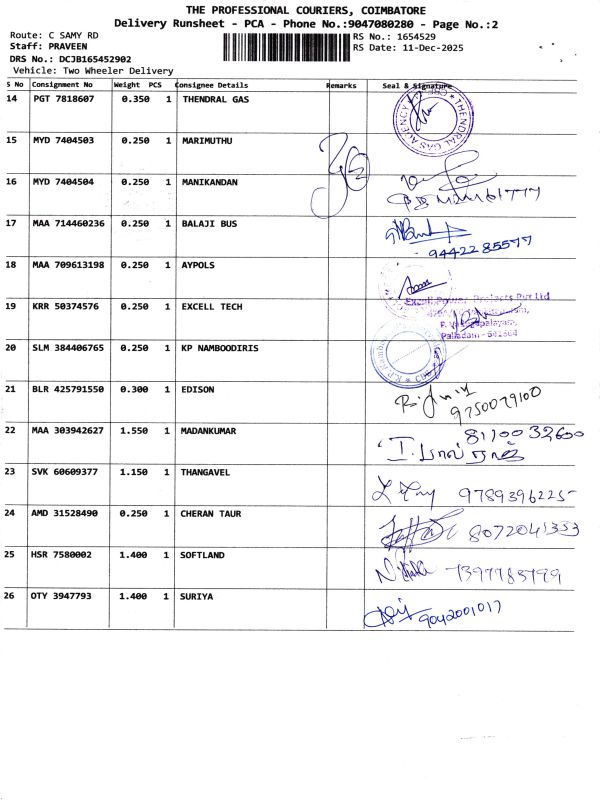 THE PROFESSIONAL COURIERS, COIMBATORE
Delivery Runsheet - PCA - Phone No.:9047080280 - Page No.:2
Route: C SAMY RD
RS No.: 1654529
Staff: PRAVEEN
RS Date: 11-Dec-2025
DRS No.: DCJB165452902
Vehicle: Two Wheeler Delivery
S No Consignment No Weight PCS Consignee Details Remarks Seal & Signature
14 PGT 7818607 0.350 1 THENDRAL GAS
THENDRAL GAS AGENCY
15 MYD 7404503 0.250 1 MARIMUTHU
16 MYD 7404504 0.250 1 MANIKANDAN
17 MAA 714460236 0.250 1 BALAJI BUS
9442285577
18 MAA 709613198 0.250 1 AYPOLS
19 KRR 50374576 0.250 1 EXCELL TECH
Excell Power Projects Pvt Ltd
Palladam - 641664
20 SLM 384406765 0.250 1 KP NAMBOODIRIS
21 BLR 425791550 0.300 1 EDISON
9750079100
22 MAA 303942627 1.550 1 MADANKUMAR
8110032600
23 SVK 60609377 1.150 1 THANGAVEL
9789396225
24 AMD 31528490 0.250 1 CHERAN TAUR
8072041353
25 HSR 7580002 1.400 1 SOFTLAND
7397783799
26 OTY 3947793 1.400 1 SURIYA
9042001017